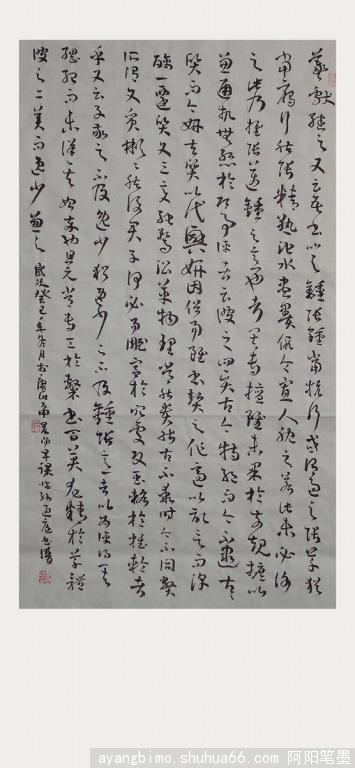 羲獻繼之又云吾書比之鍾張鍾當抗行或謂過之張草猶
當雁行然張精熟池水盡墨假令寡人耽之若此未必謝
之此乃推張邁鍾之意也考其專擅雖未果於前規摭以
兼通故無慚於即事評者云彼之四賢古今特絕而今不逮古〻
質而今妍夫質以代興妍因俗易雖書契之作適以記言而淳
醨一遷質文三變馳鶩沿革物理常然貴能古不乖時今不同弊
所謂文質彬彬然後君子何必易雕宮於穴處反玉輅於椎輪者
乎又云子敬之不及逸少猶逸少之不及鍾張意者以為評得其
綱紀而未詳其始卒也且元常專工於隸書百英尤精於草體
彼之二美而逸少兼之 歲次癸巳年冬月於唐山早課臨孫過庭書譜
ayangbimo.shuhua66.com 阿阳笔墨